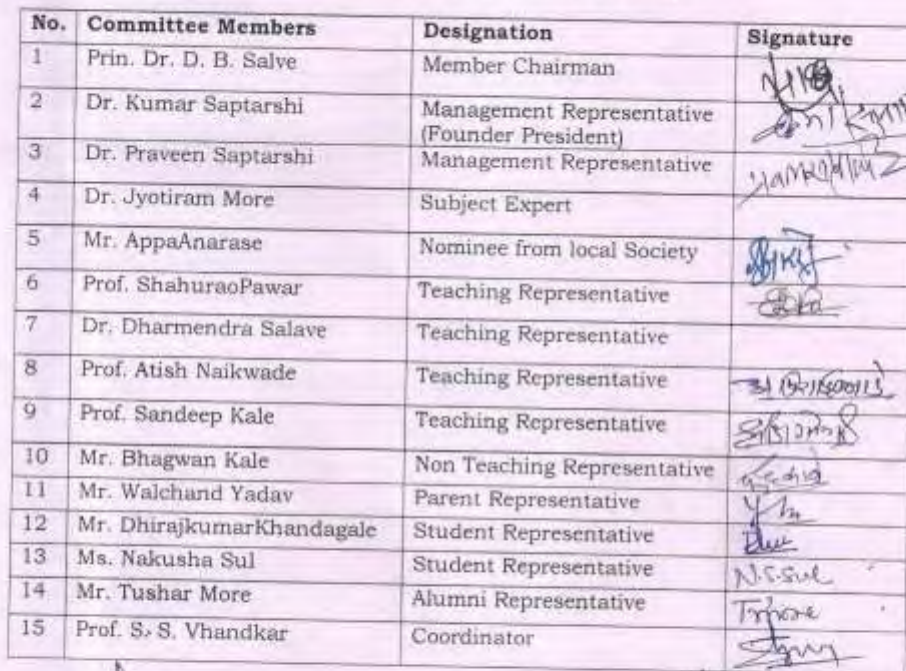 No. Committee Members Designation Signature
1 Prin. Dr. D. B. Salve Member Chairman
2 Dr. Kumar Saptarshi Management Representative
(Founder President)
3 Dr. Praveen Saptarshi Management Representative
4 Dr. Jyotiram More Subject Expert
5 Mr. AppaAnarase Nominee from local Society
6 Prof. ShahuraoPawar Teaching Representative
7 Dr. Dharmendra Salave Teaching Representative
8 Prof. Atish Naikwade Teaching Representative
9 Prof. Sandeep Kale Teaching Representative
10 Mr. Bhagwan Kale Non Teaching Representative
11 Mr. Walchand Yadav Parent Representative
12 Mr. DhirajkumarKhandagale Student Representative
13 Ms. Nakusha Sul Student Representative N.S.Sul
14 Mr. Tushar More Alumni Representative
15 Prof. S. S. Vhandkar Coordinator